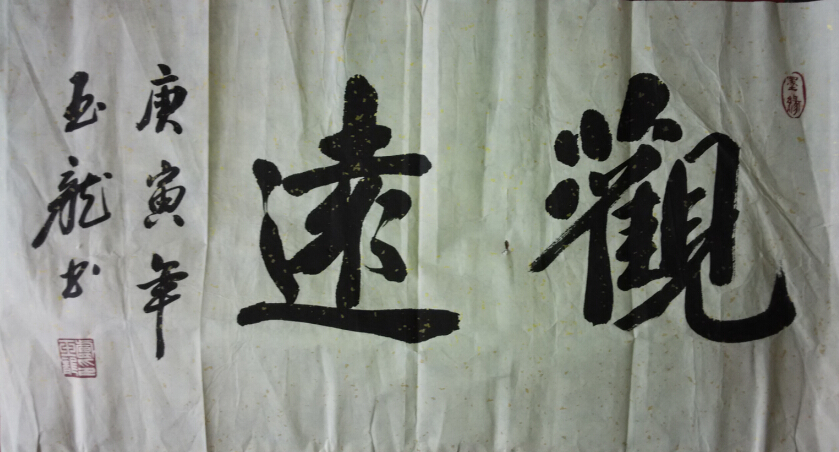 觀遠
庚寅年
玉龍书